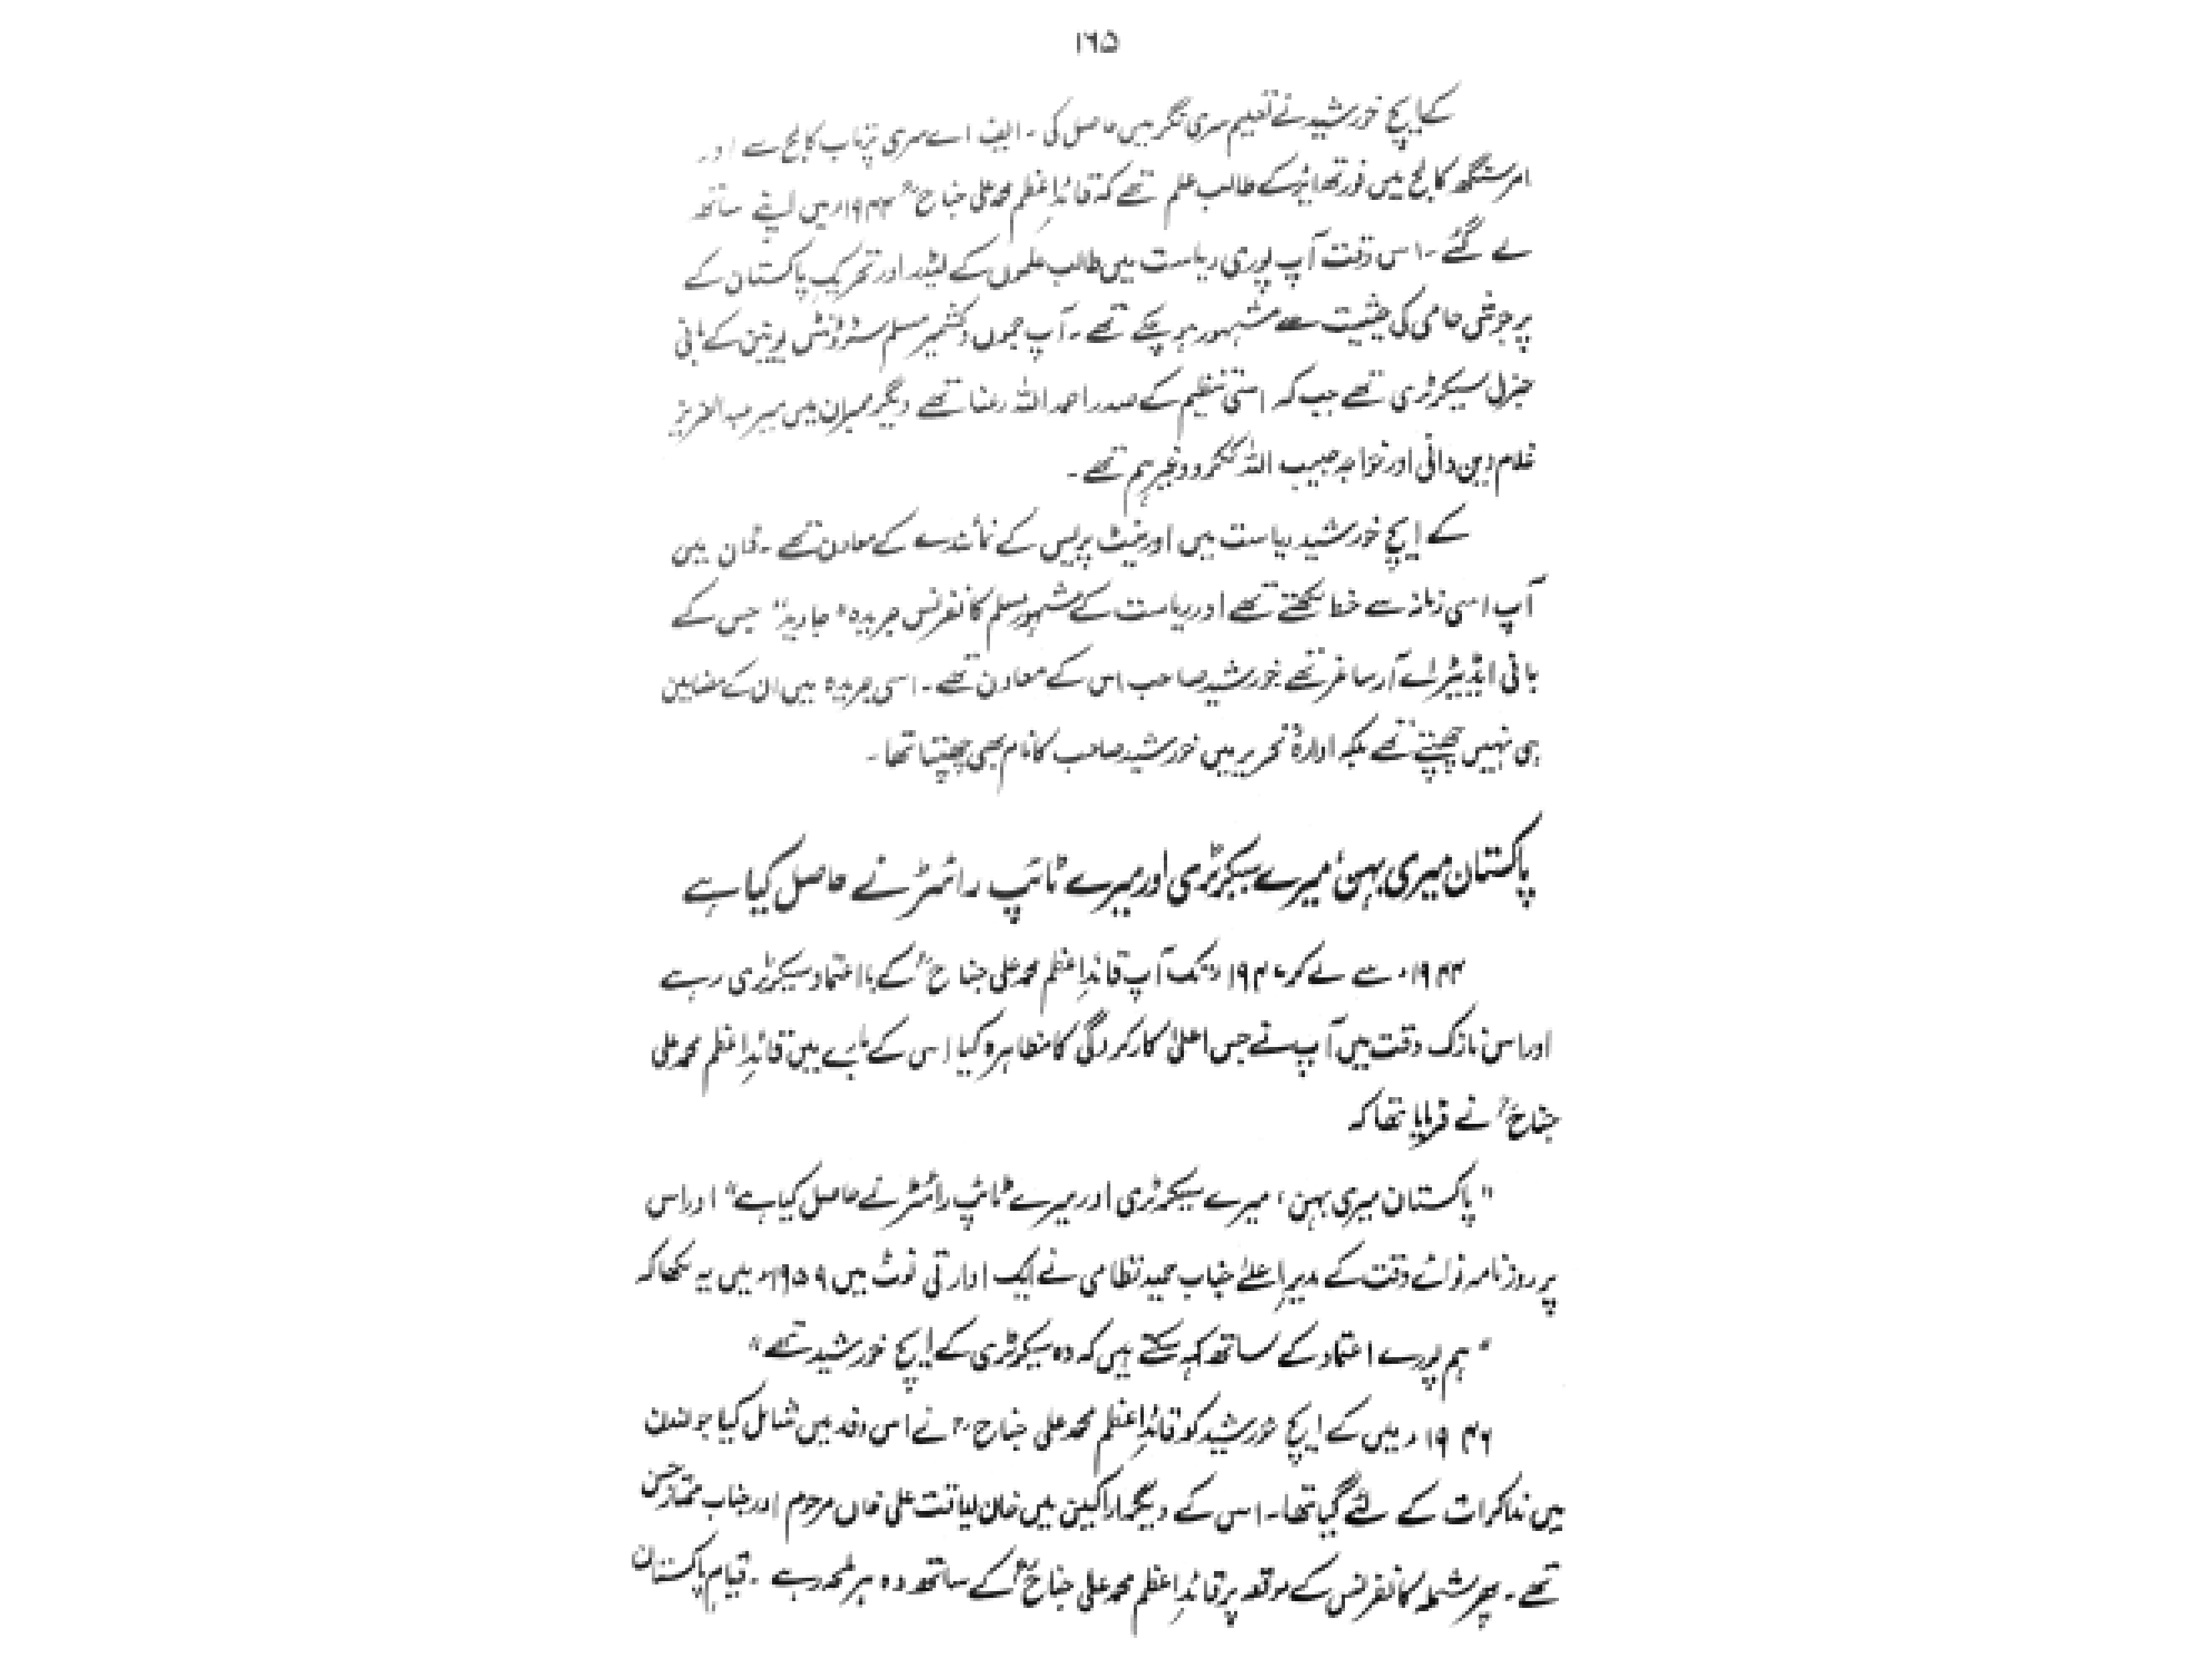 ۱۶۵
کے ایچ خورشید نے تعلیم سری نگر میں حاصل کی ۔ ایف اے سری پرتاب کالج سے اور
امر سنگھ کالج میں فورتھ ایئر کے طالب علم تھے کہ قائدِاعظم محمد علی جناحؒ ۱۹۴۴ء میں اپنے ساتھ
لے گئے ۔ اس وقت آپ پوری ریاست میں طالب علموں کے لیڈر اور تحریکِ پاکستان کے
پرجوش حامی کی حیثیت سے مشہور ہو چکے تھے ۔ آپ جموں وکشمیر مسلم سٹوڈنٹس یونین کے بانی
جنرل سیکرٹری تھے جب کہ اسی تنظیم کے صدر احمد اللہ رعنا تھے دیگر ممبران میں میر عبدالعزیز
غلام دین وانی اور خواجہ حبیب اللہ وغیرہم تھے ۔
کے ایچ خورشید ریاست میں اورینٹ پریس کے نمائندے کے معاون تھے ۔ ڈان میں
آپ اسی زمانہ سے خط لکھتے تھے اور ریاست کے مشہور مسلم کانفرنس جریدہ "جاوید" جس کے
بانی ایڈیٹر اے آر ساغر تھے خورشید صاحب اس کے معاون تھے ۔ اسی جریدہ میں ان کے مضامین
ہی نہیں چھپتے تھے بلکہ ادارۂ تحریر میں خورشید صاحب کا نام بھی چھپتا تھا ۔
پاکستان میری بہن، میرے سیکرٹری اور میرے ٹائپ رائٹر نے حاصل کیا ہے
۱۹۴۴ء سے لے کر ۱۹۴۷ء تک آپ قائدِاعظم محمد علی جناحؒ کے بااعتماد سیکرٹری رہے
اور اسی نازک وقت میں آپ نے جس اعلیٰ کارکردگی کا مظاہرہ کیا اس کے بارے میں قائدِاعظم محمد علی
جناحؒ نے فرمایا تھا کہ
"پاکستان میری بہن، میرے سیکرٹری اور میرے ٹائپ رائٹر نے حاصل کیا ہے" اور اس
پر روزنامہ نوائے وقت کے مدیرِ اعلےٰ جناب مجید نظامی نے ایک ادارتی نوٹ میں ۱۹۵۹ء میں یہ لکھا کہ
"ہم پورے اعتماد کے ساتھ کہہ سکتے ہیں کہ وہ سیکرٹری کے ایچ خورشید تھے"
۱۹۴۶ء میں کے ایچ خورشید کو قائدِاعظم محمد علی جناحؒ نے اس وفد میں شامل کیا جو لندن
میں مذاکرات کے لئے گیا تھا ۔ اس کے دیگر اراکین میں خان لیاقت علی خاں مرحوم اور جناب ممتاز حسن
تھے ۔ پھر شملہ کانفرنس کے موقعہ پر قائدِاعظم محمد علی جناحؒ کے ساتھ وہ ہر لمحہ رہے ۔ قیامِ پاکستان